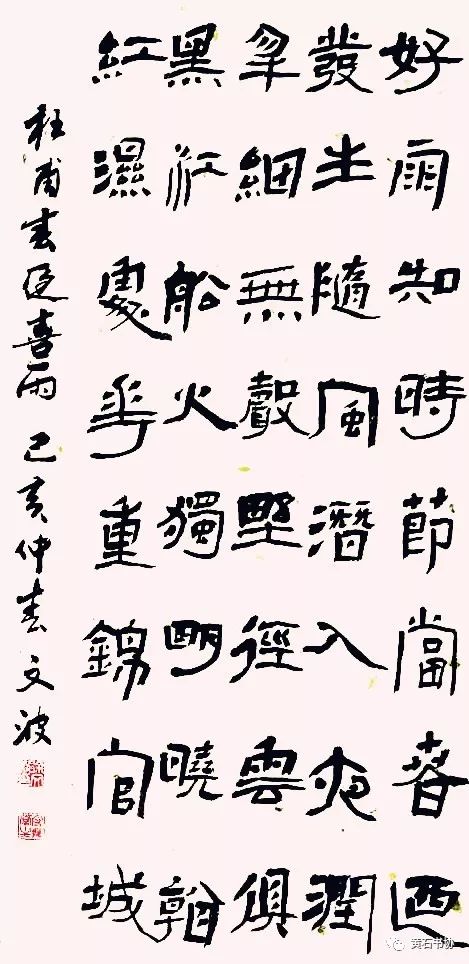 好雨知時節當春迺
發生隨風潛入夜潤
物細無聲野徑雲俱
黑江船火獨明曉看
紅濕處華重錦官城
杜甫春夜喜雨 己亥仲春 文波
黄石书协